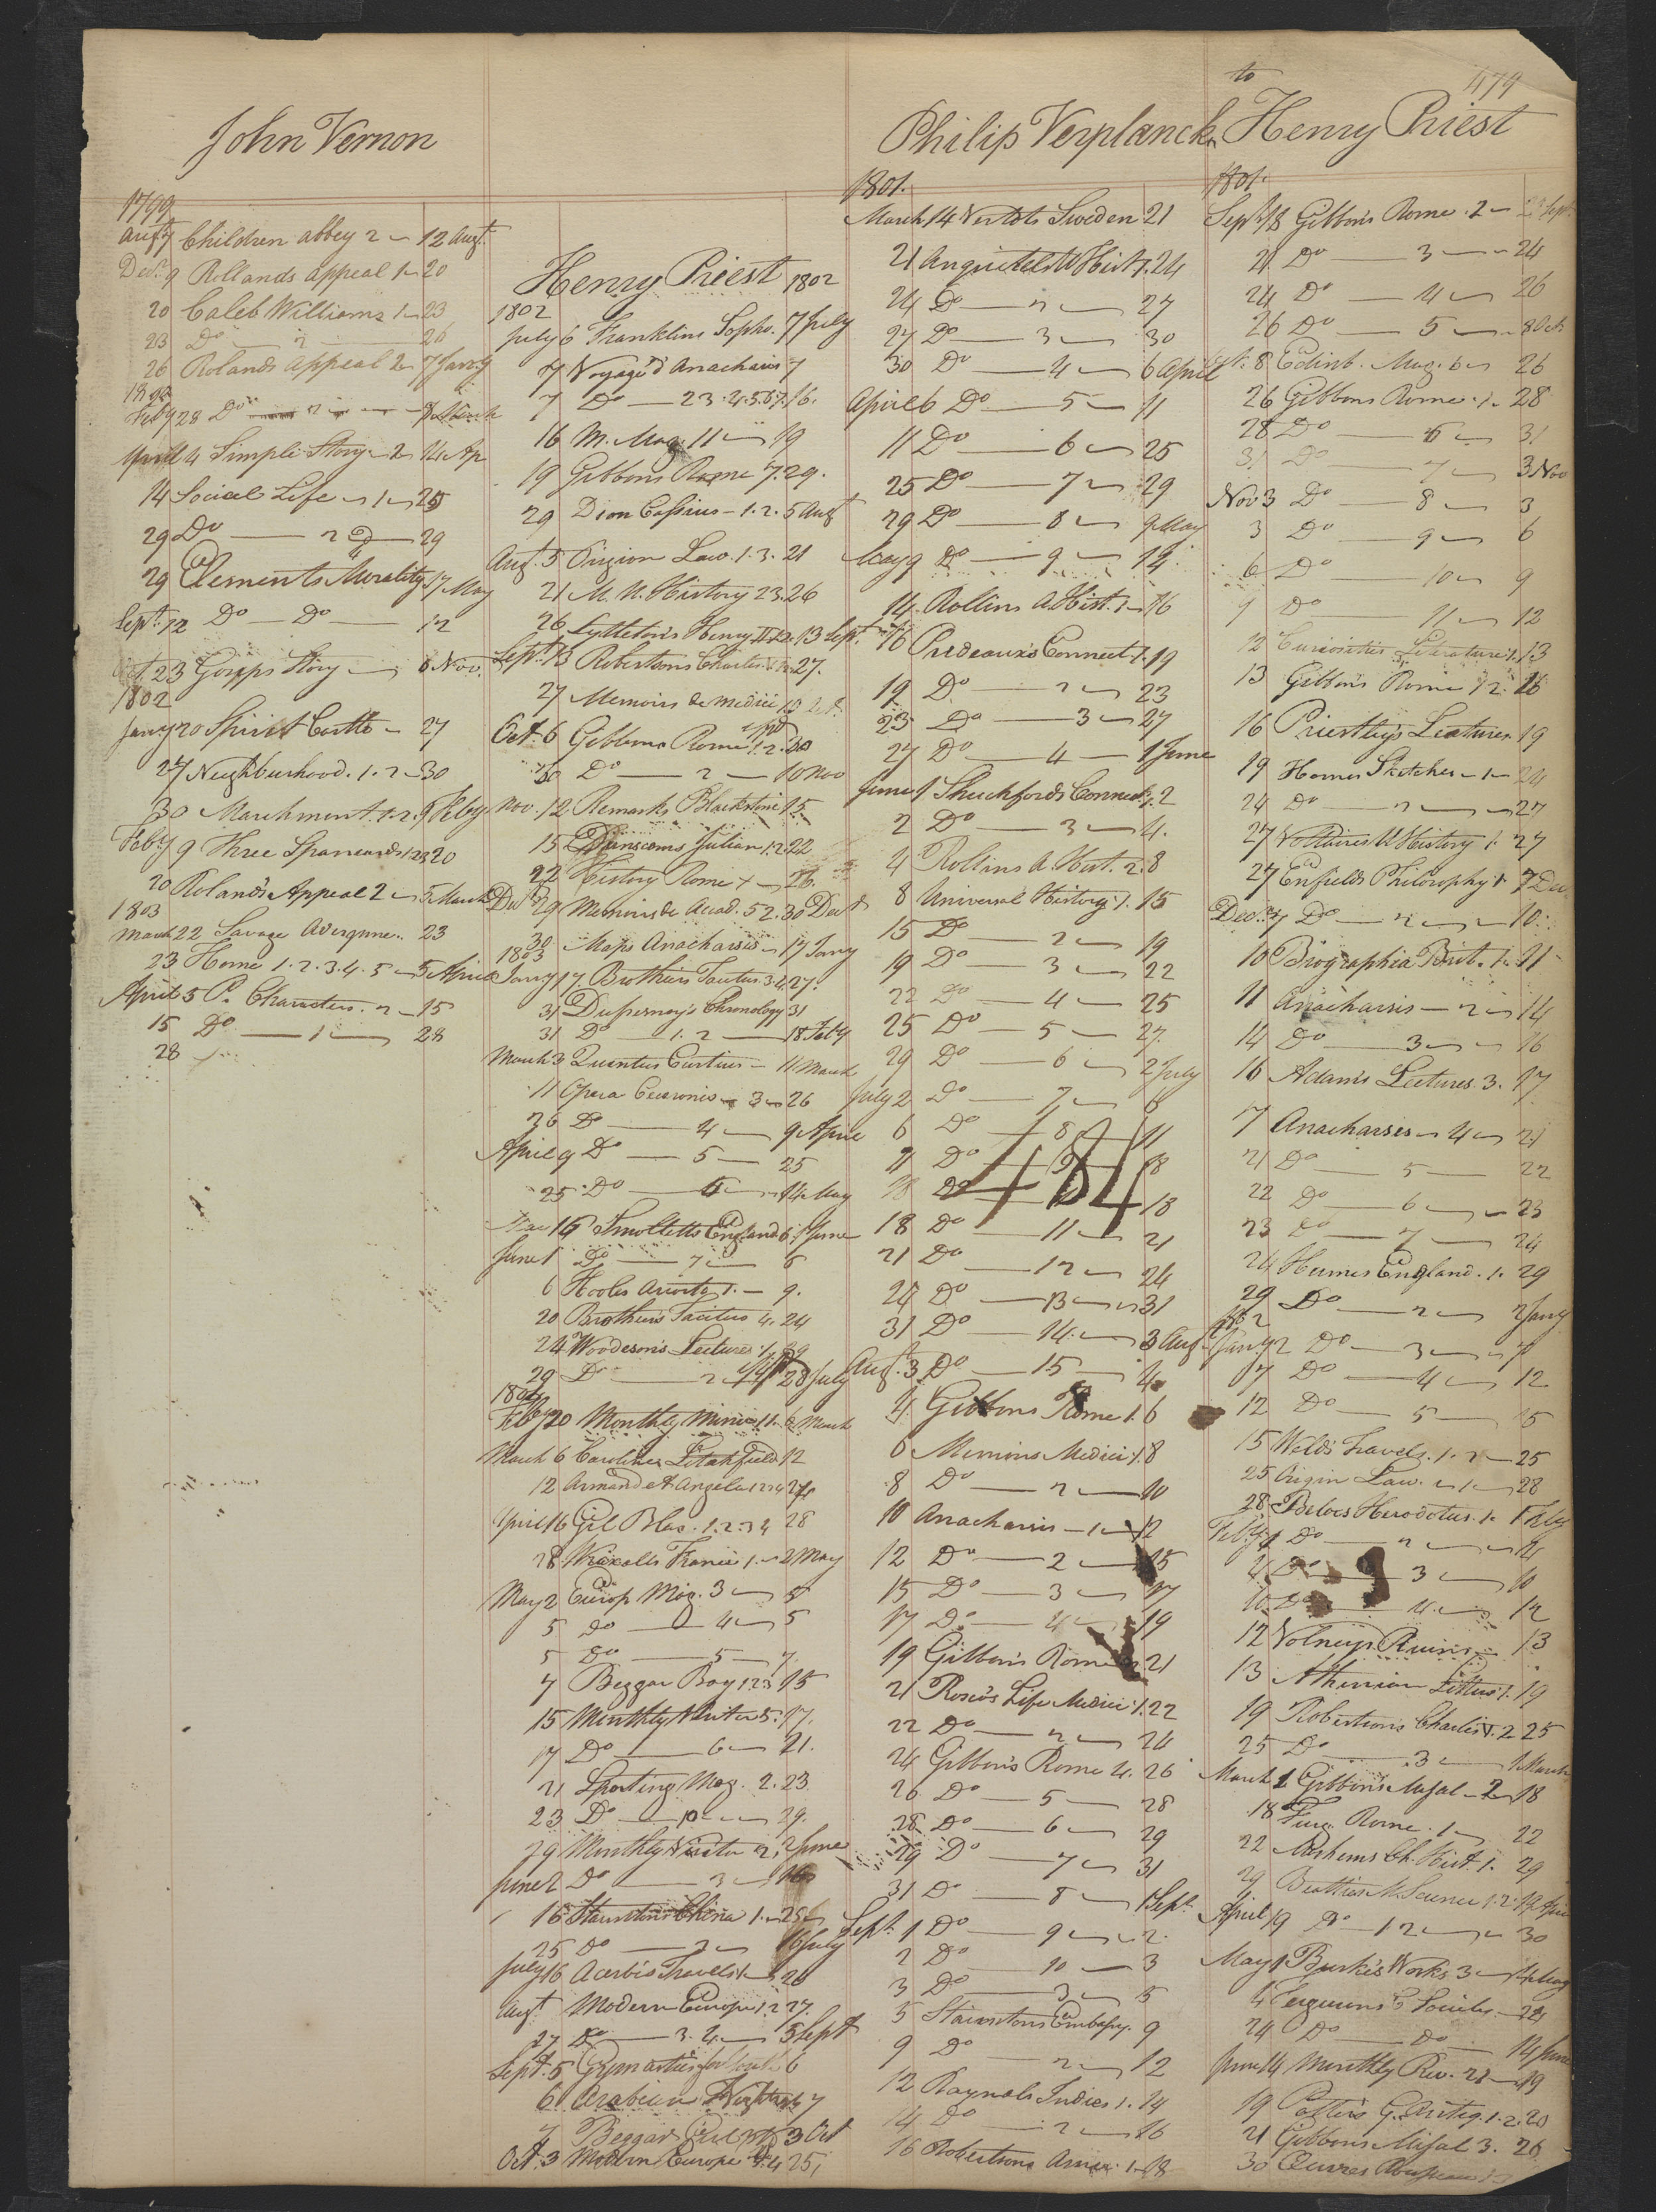 479
to
John Vernon
1799
Augt 7 Children abbey 2 12 Augt
Decr 9 Rollands appeal 1 20
20 Caleb Williams 1 23
23 Do 2 26
26 Rolands appeal 2 7 Jany
Feby 28 Do 2 March
April 4 Simple Story 2 14 Ap
14 Social Life 1 25
29 Do 2 29
29 Elements Morality 17 May
Sept. 12 Do Do 12
23 Gossps Story 6 Nov.
1802
Jany 20 Spirit Castle 27
27 Neighbourhood. 1. 2 30
30 Marchmont. 1. 2. 9 Feby
Feby 9 Three Spaniards 1 2 3 20
20 Roland's Appeal 2 5 March
1803
March 22 Savage Avergnne. 23
23 Home 1. 2. 3. 4. 5 5 April
April 5 P. Characters. 2 15
15 Do 1 28
28
Henry Priest 1802
1802
July 6 Franklins Sopho. 7 July
7 Voyage d'Anacharsis 7
7 Do 2 3. 4. 5. 6 7. 16.
16 M. Mag. 11 19
19 Gibbons Rome 7. 29.
29 Dion Cassius 1. 2. 5 Augt
Aug. 5 Origion Law. 1. 3. 21
21 M. U. History 23. 26
26 Lyttleton's Henry II 1 2. 13 Sept.
Sept. 13 Robertsons Charles 27.
27 Memoirs de Medici
Oct. 6 Gibbons Rome 1. 2. 30
30 Do 2 10 Nov
Nov. 12 Remarks Blackstone 15
15 Duncoms Julian 1. 2. 22
22 History Rome 26.
Decr 29 Memoirs de Acad. 52. 30 Decr
30 Maps Anacharsis 17 Jany
1803
Jany 17. Brothiers Tacitus. 3. 4. 27.
31 Dufresnoy's Chronology 31
31 Do 1. 2 18 Feby
March 3 Quintus Curtius 11 March
11 Opera Ciceronis 3 26
26 Do 4 9 April
April 9 Do 5 25
25 Do 6 14 May
16 Smolletts England 6. 1 June
June 1 Do 7 6
6 Hooles Ariosto 1. 9.
20 Brothiers Tacitus 4. 24
24 Woodesons Lectures 1. 29
29 Do 2 28 July
1804
Feby 20 Monthly Mirror 11. 6 March
March 6 Caroline Litchfield 12
12 Armand et Angela 1 2 3 4 24
April 16 Gil Blas. 1. 2 3 4 28
28 Wraxalls France 1. 2 May
May 2 Europ Mag. 3 5
5 do 4 5
5 Do 5 7
7 Beggar Boy 1 2 3 15
15 Monthly Visitor 5. 17.
17 Do 6 21.
21 Sporting Mag. 2. 23.
23 Do 10 29.
29 Monthly Visitor 2. 2 June
June 2 Do 3 16
16 Stauntons China 1. 25
25 Do 2 16 July
July 16 Acerbi's Travels 1 26
Augt Modern Europe 1. 2 27.
27 Do 3. 4. 5 Sept
Sept. 5 Gymnastics for Youth 6
6 Arabian Nights 7
7 Beggar Girl 3 Oct
Oct. 3 Modern Europe 3. 4 25
Philip Verplanck
1801.
March 14 Vertots Sweden 21
21 Anquitels U Hist 1. 24
24 Do 2 27
27 Do 3 30
30 Do 4 6 April
April 6 Do 5 11
11 Do 6 25
25 Do 7 29
29 Do 8 9 May
May 9 Do 9 14.
14. Rollins A Hist. 1 16
16 Prideaux's Connect. 1. 19
19 Do 2 23
23 Do 3 27
27 Do 4 1 June
June 1 Shuckfords Connect 1. 2
2 Do 3 4.
4 Rollins A Hist. 2. 8
8 Universal History 1. 15
15 Do 2 19
19 Do 3 22
22 Do 4 25
25 Do 5 27.
29 Do 6 2 July
July 2 Do 7 6
6 Do 8 11
11 Do 9 18
18 Do 18
484
18 Do 11 21
21 Do 12 24
24 Do 13 31
31 Do 14. 3 Aug
Aug. 3 Do 15 4
4 Gibbons Rome 1. 6
6 Memoirs Medici 1. 8
8 Do 2 10
10 Anacharsis 1 12
12 Do 2 15
15 Do 3 17
17 Do 4 19
19 Gibbon's Rome 21
21 Roscoe's Life Medici 1. 22
22 Do 2 24
24 Gibbon's Rome 4. 26
26 Do 5 28
28 Do 6 29
29 Do 7 31
31 Do 8 1 Sept.
Sept. 1 Do 9 2.
2 Do 10 3
3 Do 3 5
5 Stauntons Embassy. 9
9 Do 2 12
12 Raynals Indies 1. 14
14 Do 2 16
16 Robertsons Amer. 1 18
Henry Priest
1801.
Septr 18 Gibbon's Rome. 2 21 Sept.
21 Do 3 24
24 Do 4 26
26 Do 5 8 Oct
Oct. 8 Edinb. Mag. 6 26
26 Gibbons Rome. 1. 28
28 Do 6 31
31 Do 7 3 Nov
Nov 3 Do 8 3
3 Do 9 6
6 Do 10 9
9 Do 11 12
12 Curiosities Literature 1. 13
13 Gibbon's Rome 12. 16
16 Priestley's Lectures 19
19 Homes Sketches 1 24
24 Do 2 27
27 Voltaires U History 1. 27
27 Enfields Philosophy 1 7 Dec
Decr 7 Do 2 10
10 Biographia Brit. 1. 11
11 Anacharsis 2 14
14 Do 3 16
16 Adam's Lectures. 3. 17
17 Anacharsis 4 21
21 Do 5 22
22 Do 6 23
23 Do 7 24
24 Humes England. 1. 29
29 Do 2 2 Jany
1802
Jany 2 Do 3 7
7 Do 4 12
12 Do 5 15
15 Welds Travels. 1. 2 25
25 Origin Law. 1 28
28 Beloes Herodotus. 1. 1 Feby
Feby 1 Do 2 4
4 Do 3 10
10 Do 4. 12
12 Volneys Ruins 13
13 Athenian Letters 1. 19
19 Robertsons Charles V. 2 25
25 Do 3 1 March
March 1 Gibbon's Misal 2 18
18 Ferg. Rome. 1 22
22 Mosheims Ch. Hist. 1. 29
29 Beatties M. Science 1. 2. 19 April
April 19 Do 1 2 30
May 1 Burke's Works 3 14 May
Fergusons C Society 24
24 Do Do 14 June
June 14 Monthly Rev. 21 19
19 Potter's G. Antiq. 1. 2. 20
21 Gibbons Misal 3. 26
30 Œuvres Rousseau